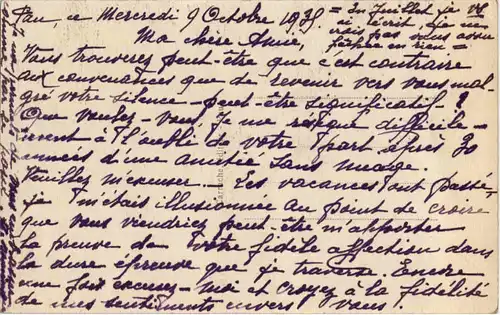 Pau, ce Mercredi 9 Octobre 1935
= En Juillet je
ai écrit, je ne
crois pas vous avoir
en rien =
Ma chère Anne,
Vous trouverez peut-être que c'est contraire
aux convenances que de revenir vers vous mal-
gré votre silence - peut-être significatif ?
Que voulez-vous, je me résigne difficile-
ment à l'oubli de votre part après 30
années d'une amitié sans nuage.
Veuillez m'excuser. - Les vacances ont passé,
je m'étais illusionnée au point de croire
que vous viendriez peut-être m'apporter
la preuve de votre fidèle affection dans
la dure épreuve que je traverse. Encore
une fois excusez-moi et croyez à la fidélité
de mes sentiments envers vous.